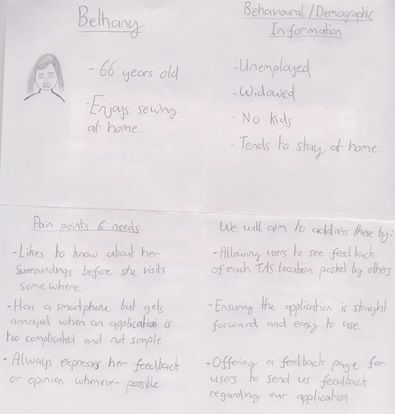 Bethany
- 66 years old
- Enjoys sewing
at home
Behavioural / Demographic
Information
- Unemployed
- Widowed
- No kids
- Tends to stay at home
Pain points & needs
- Likes to know about her
surroundings before she visits
some where
- Has a smartphone but gets
annoyed when an application is
too complicated and not simple
- Always expresses her feedback
or opinion whenever possible
We will aim to address these by:
- Allowing users to see feedback
of each TAS location posted by others
- Ensuring the application is straight
forward and easy to use
- Offering a feedback page for
users to send us feedback
regarding our application